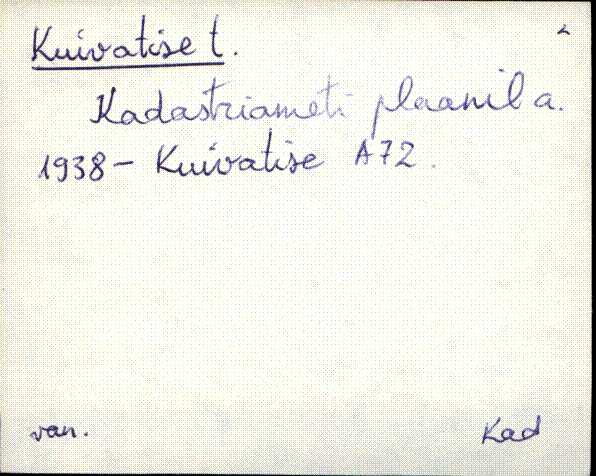 Kuivatise t.
Kadastriameti plaanil a.
1938 – Kuivatise A72.
van.
Kad